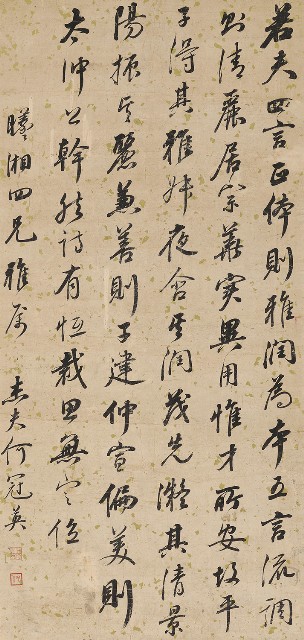 若夫四言正體則雅潤為本五言流調
則清麗居宗華實異用惟才所安故平
子得其雅叔夜含其潤茂先凝其清景
陽振其麗兼善則子建仲宣偏美則
太沖公幹然詩有恆裁思無定位
曦湘四兄雅屬 杰夫何冠英